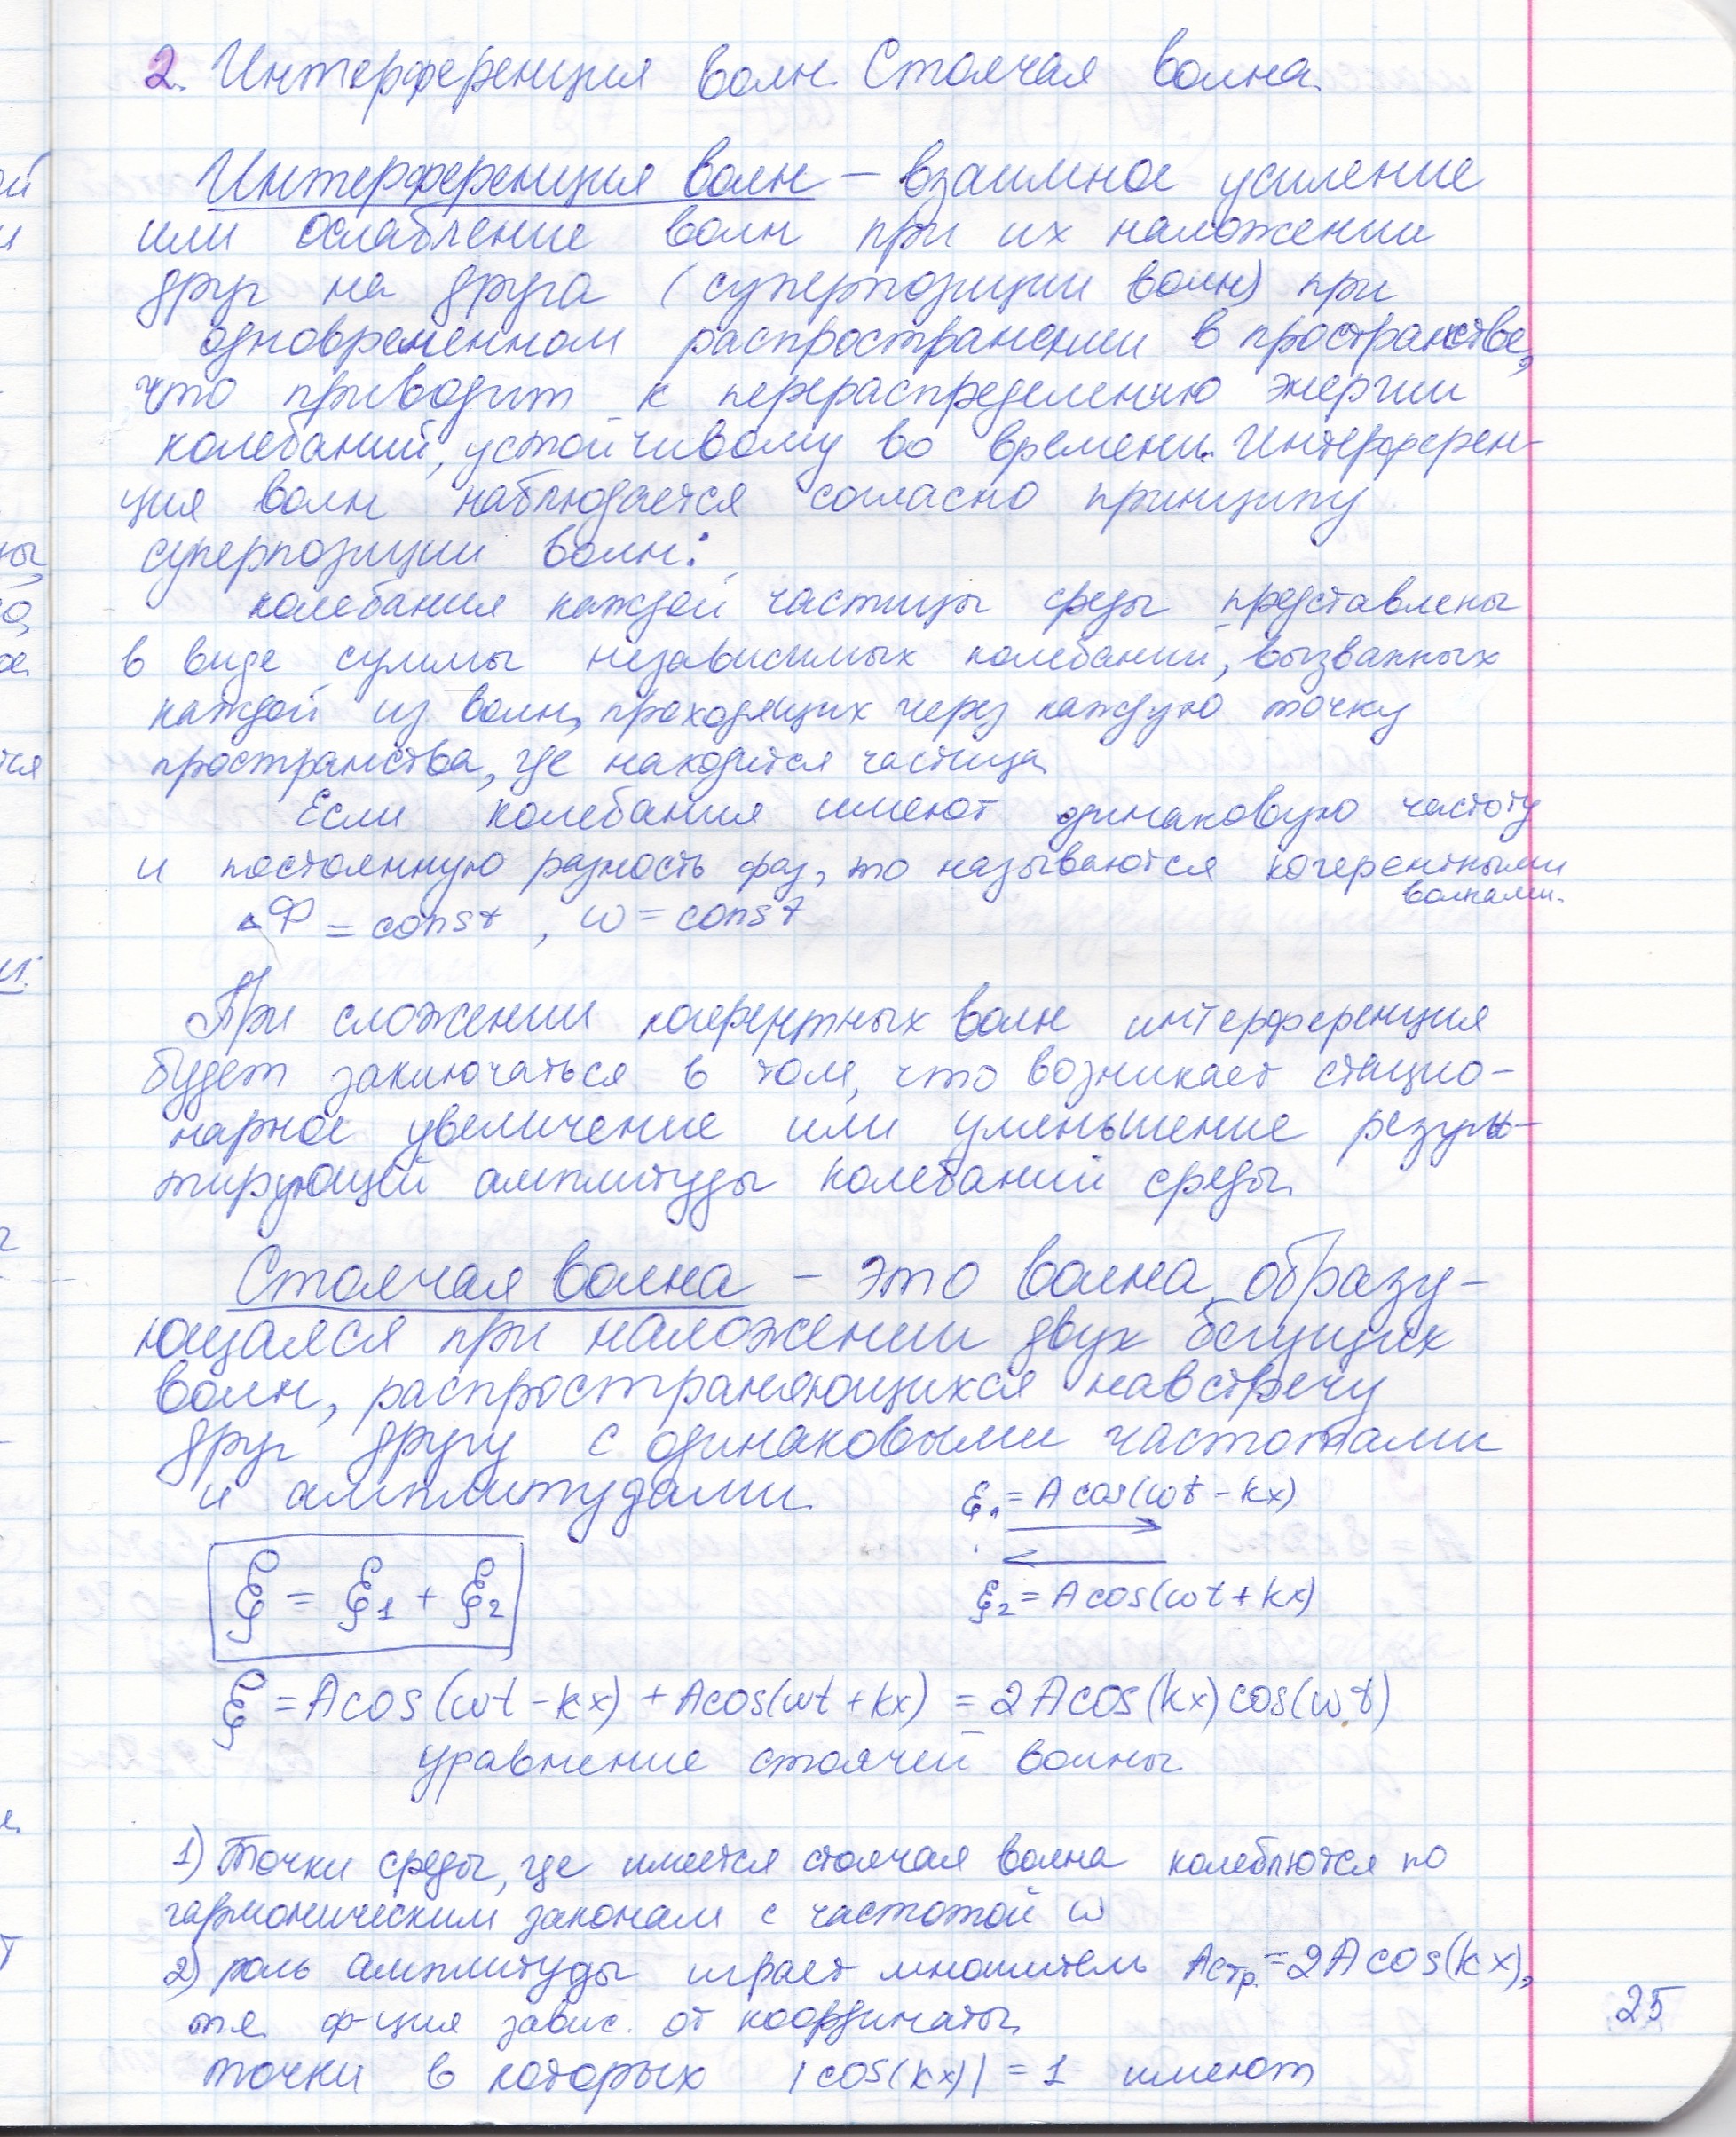 2. Интерференция волн. Стоячая волна.
Интерференция волн – взаимное усиление
или ослабление волн при их наложении
друг на друга (суперпозиции волн) при
одновременном распространении в пространстве,
что приводит к перераспределению энергии
колебаний, устойчивому во времени. Интерферен-
ция волн наблюдается согласно принципу
суперпозиции волн:
колебания каждой частицы среды представлены
в виде суммы независимых колебаний, вызванных
каждой из волн, проходящих через каждую точку
пространства, где находится частица.
Если колебания имеют одинаковую частоту
и постоянную разность фаз, то называются когерентными
волнами.
ΔФ = const, ω = const
При сложении когерентных волн интерференция
будет заключаться в том, что возникает стацио-
нарное увеличение или уменьшение резуль-
тирующей амплитуды колебаний среды.
Стоячая волна – это волна, образу-
ющаяся при наложении двух бегущих
волн, распространяющихся навстречу
друг другу с одинаковыми частотами
и амплитудами.
ξ₁ = A cos(ωt - kx)
ξ = ξ₁ + ξ₂
ξ₂ = A cos(ωt + kx)
ξ = A cos(ωt - kx) + A cos(ωt + kx) = 2A cos(kx) cos(ωt)
уравнение стоячей волны
1) Точки среды, где имеется стоячая волна колеблются по
гармоническим законам с частотой ω
2) роль амплитуды играет множитель Aстр. = 2A cos(kx),
т.е. ф-ция завис. от координаты.
точки в которых |cos(kx)| = 1 имеют
25